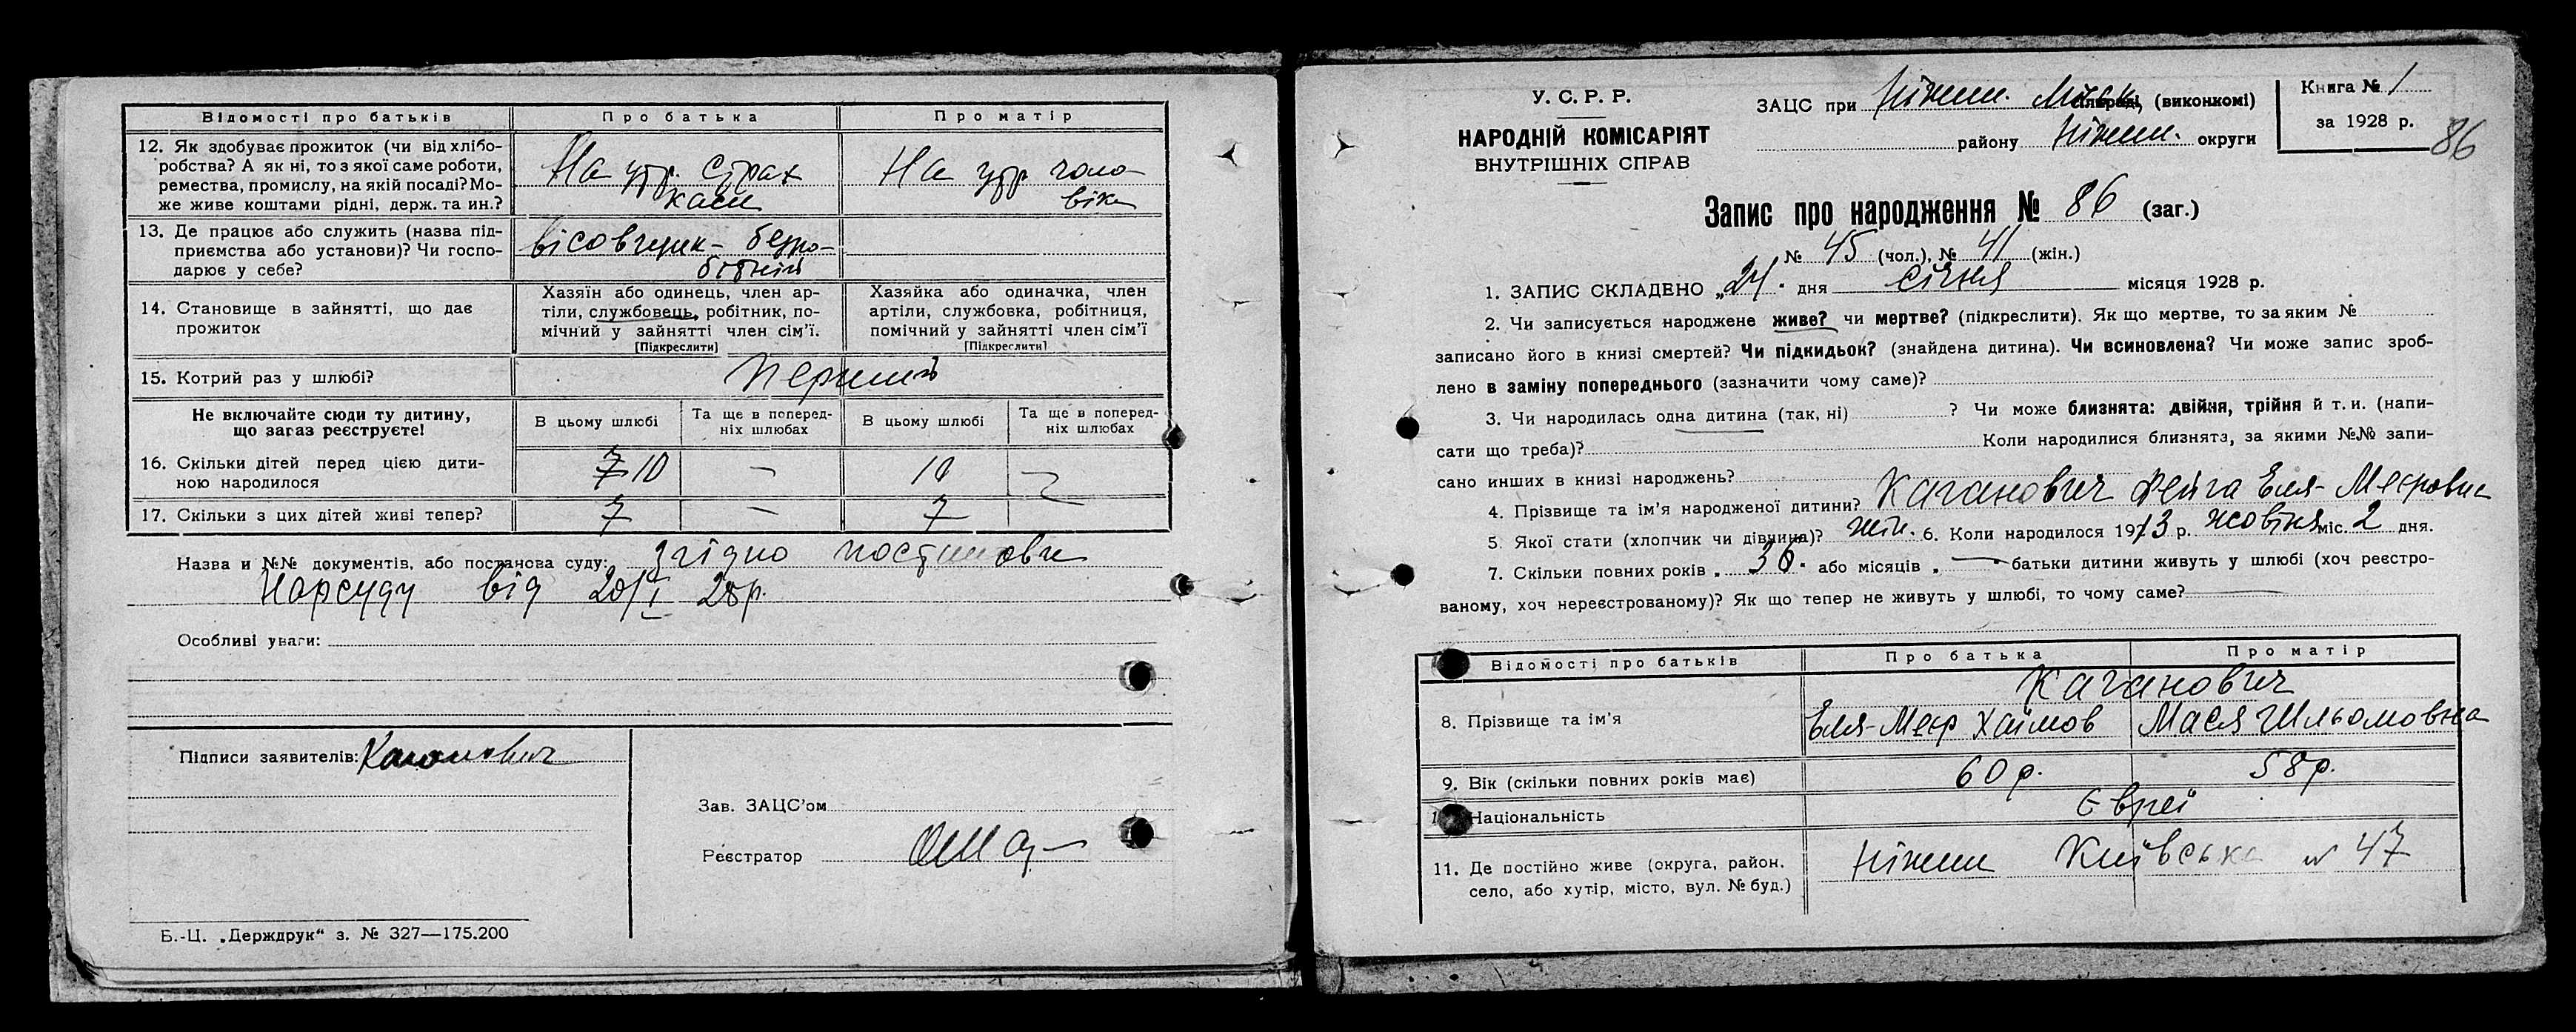 Відомості про батьків
Про батька
Про матір
12. Як здобуває прожиток (чи від хлібо-
робства? А як ні, то з якої саме роботи,
ремества, промислу, на якій посаді? Мо-
же живе коштами рідні, держ. та ин.?
На утр. Страх
каси
На утр чоло-
віка
13. Де працює або служить (назва під-
приємства або установи)? Чи госпо-
дарює у себе?
вісовщик - безро-
бітній
14. Становище в зайнятті, що дає
прожиток
Хазяїн або одинець, член ар-
тіли, службовець, робітник, по-
мічний у зайнятті член сім'ї.
[Підкреслити]
Хазяйка або одиначка, член
артіли, службовка, робітниця,
помічний у зайнятті член сім'ї
[Підкреслити]
15. Котрий раз у шлюбі?
перший
Не включайте сюди ту дитину,
що загаз реєструєте!
В цьому шлюбі
Та ще в поперед-
ніх шлюбах
В цьому шлюбі
Та ще в поперед-
ніх шлюбах
16. Скільки дітей перед цією дити-
ною народилося
7 10 — 10 —
17. Скільки з цих дітей живі тепер?
7 — 7 —
Назва и №№ документів, або постанова суду: згідно постанови
Нарсуду від 20/I 28р.
Особливі уваги:
Підписи заявителів: Каганович
Зав. ЗАЦС'ом
Реєстратор
Б.-Ц. „Держдрук“ з. № 327—175.200
У. С. Р. Р.
НАРОДНІЙ КОМІСАРІЯТ
ВНУТРІШНІХ СПРАВ
ЗАЦС при Ніжин. Міськ (виконкомі)
району Ніжин. округи
Книга № 1
за 1928 р.
86
Запис про народження № 86 (заг.)
№ 45 (чол.), № 41 (жін.)
1. ЗАПИС СКЛАДЕНО „24. дня січня місяця 1928 р.
2. Чи записується народжене живе? чи мертве? (підкреслити). Як що мертве, то за яким №
записано його в книзі смертей? Чи підкидьок? (знайдена дитина). Чи всиновлена? Чи може запис зроб-
лено в заміну попереднього (зазначити чому саме)?
3. Чи народилась одна дитина (так, ні) ? Чи може близнята: двійня, трійня й т. и. (напи-
сати що треба)? Коли народилися близнята, за якими №№ запи-
сано инших в книзі народжень?
4. Прізвище та ім'я народженої дитини? Каганович Фейга Еля-Меєровна
5. Якої стати (хлопчик чи дівчина)? жін. 6. Коли народилося 1913 р. жовтня міс. 2 дня.
7. Скільки повних років „ 36. або місяців „ — батьки дитини живуть у шлюбі (хоч реєстро-
ваному, хоч нереєстрованому)? Як що тепер не живуть у шлюбі, то чому саме? —
Відомості про батьків
Про батька
Про матір
Каганович
8. Прізвище та ім'я
Еля-Меєр Хаїмов
Мася Шльомовна
9. Вік (скільки повних років має)
60 р.
58 р.
Національність
Євреї
11. Де постійно живе (округа, район,
село, або хутір, місто, вул. № буд.)
Ніжин Київська № 47